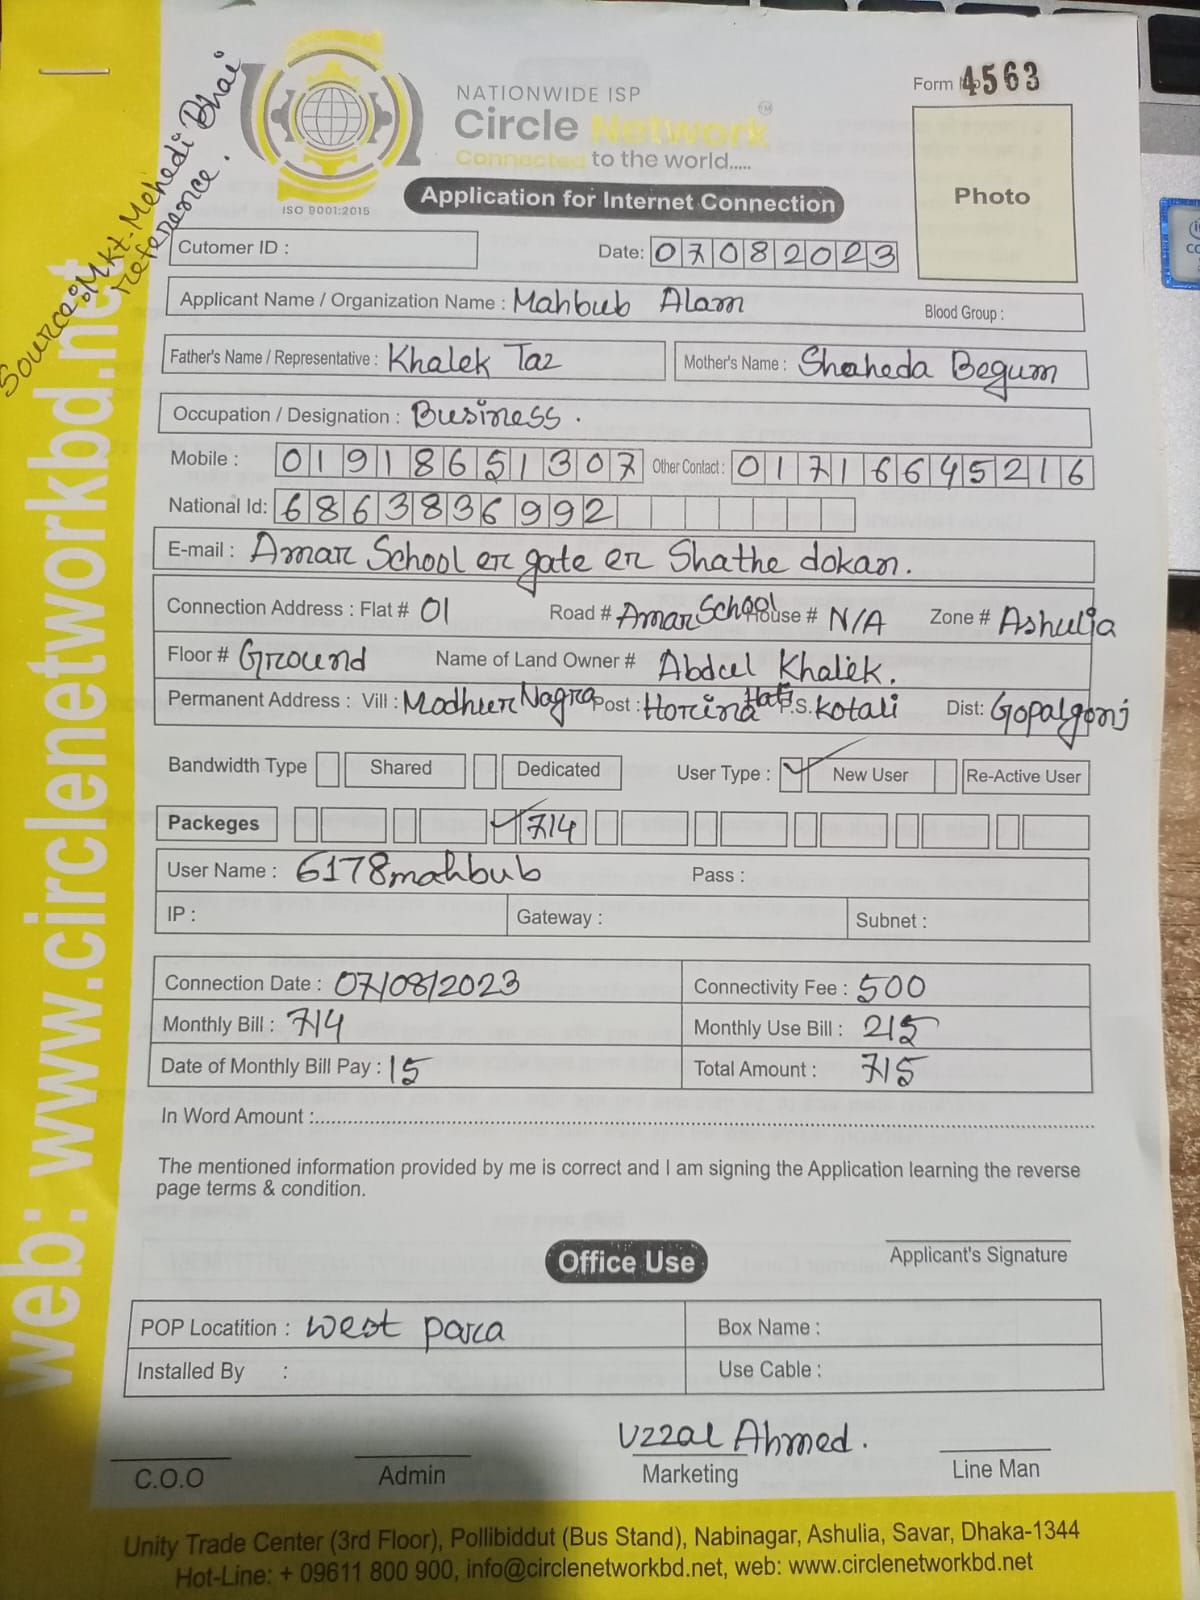 Source: Mkt-Mehedi Bhai
reference.
NATIONWIDE ISP
Circle Network TM
Connected to the world.....
ISO 9001:2015
Application for Internet Connection
Form 4563
Photo
Cutomer ID :
Date: 07082023
Applicant Name / Organization Name : Mahbub Alam Blood Group :
Father's Name / Representative : Khalek Taz Mother's Name : Shaheda Begum
Occupation / Designation : Business.
Mobile : 01918651307 Other Contact : 01716645216
National Id: 6863836992
E-mail : Amar School er gate er Shathe dokan.
Connection Address : Flat # 01 Road # Amar School House # N/A Zone # Ashulia
Floor # Ground Name of Land Owner # Abdul Khalek.
Permanent Address : Vill : Modhur Nagra Post : Horina Hati P.S. Kotali Dist: Gopalgonj
Bandwidth Type Shared Dedicated User Type : ✓ New User Re-Active User
Packeges ✓ 714
User Name : 6178mahbub Pass :
IP : Gateway : Subnet :
Connection Date : 07/08/2023 Connectivity Fee : 500
Monthly Bill : 714 Monthly Use Bill : 215
Date of Monthly Bill Pay : 15 Total Amount : 715
In Word Amount :
The mentioned information provided by me is correct and I am signing the Application learning the reverse
page terms & condition.
Applicant's Signature
Office Use
POP Locatition : west para Box Name :
Installed By : Use Cable :
Uzzal Ahmed.
C.O.O Admin Marketing Line Man
Unity Trade Center (3rd Floor), Pollibiddut (Bus Stand), Nabinagar, Ashulia, Savar, Dhaka-1344
Hot-Line: + 09611 800 900, info@circlenetworkbd.net, web: www.circlenetworkbd.net
web: www.circlenetworkbd.net